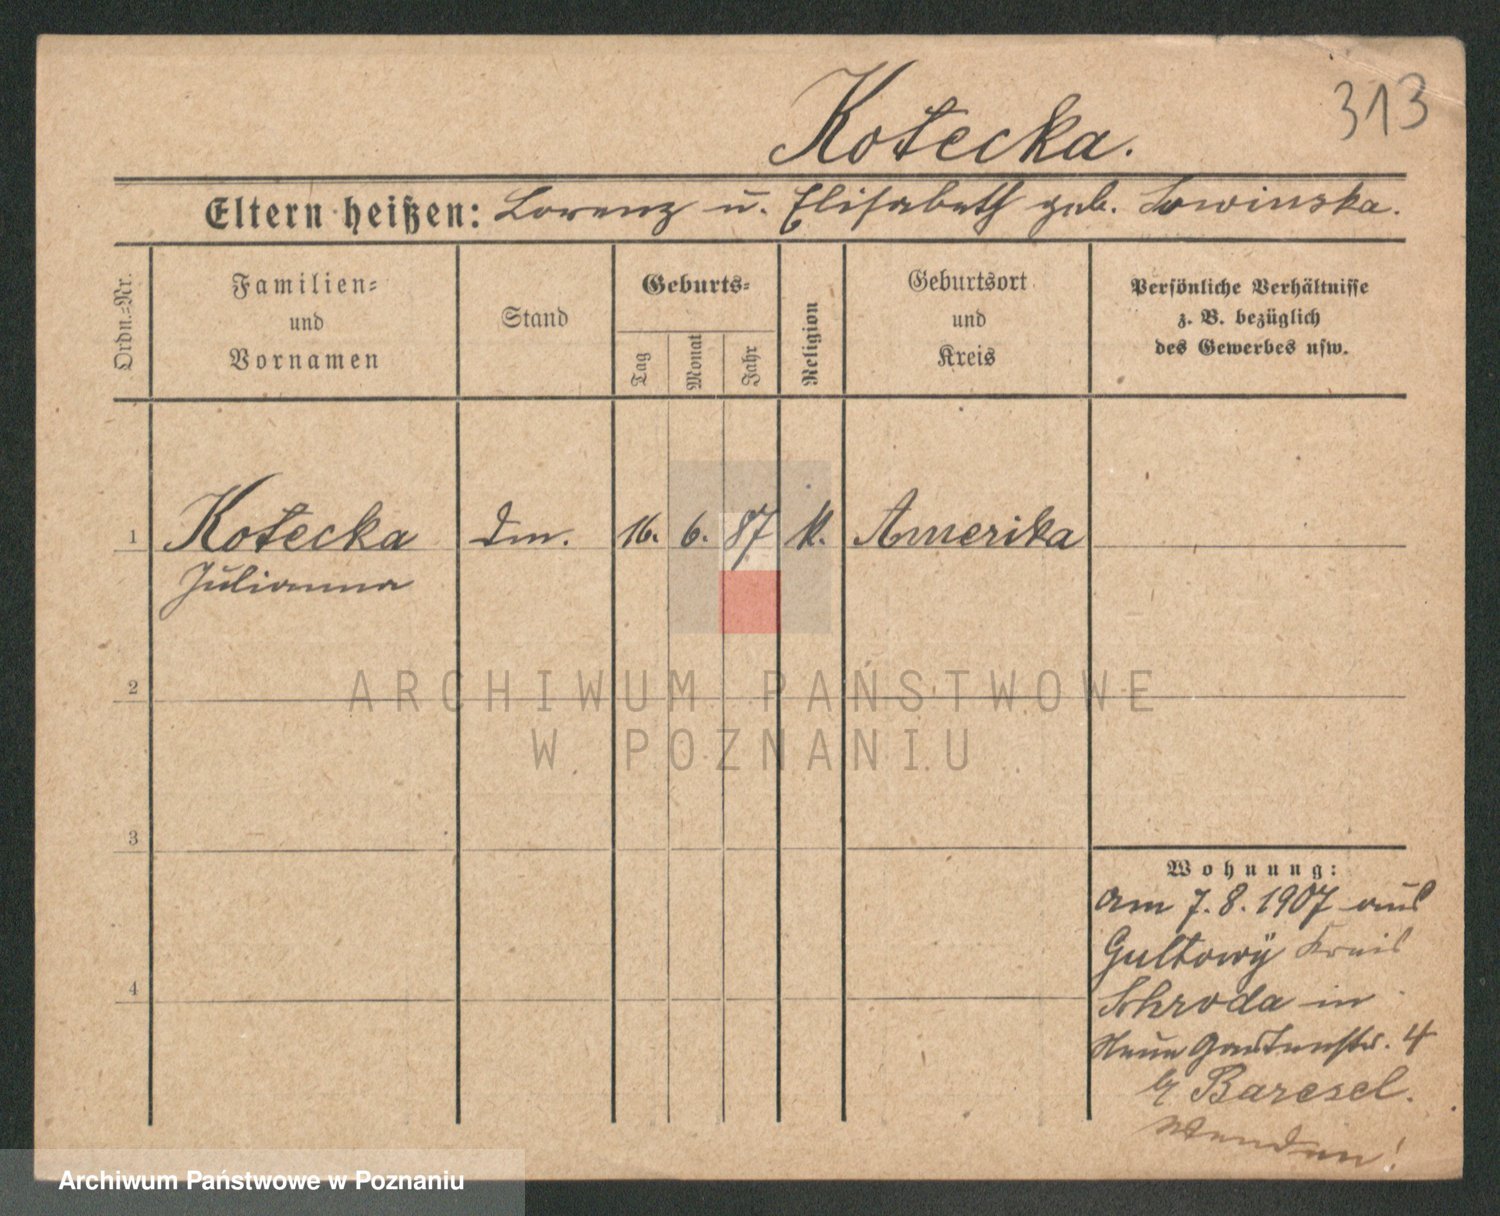 313
Kotecka.
Eltern heißen: Lorenz u. Elisabeth geb. Sowinska.
Ordn.-Nr.
Familien-
und
Vornamen
Stand
Geburts-
Tag
Monat
Jahr
Religion
Geburtsort
und
Kreis
Persönliche Verhältnisse
z. B. bezüglich
des Gewerbes usw.
1 Kotecka Dm. 16. 6. 87 k. Amerika
Julianna
2
3
4
Wohnung:
am 7. 8. 1907 aus
Gultowÿ Kreis
Schroda in
Neue Gartenstr. 4
b/ Baresel.
Wenden!
ARCHIWUM PAŃSTWOWE
W POZNANIU
Archiwum Państwowe w Poznaniu